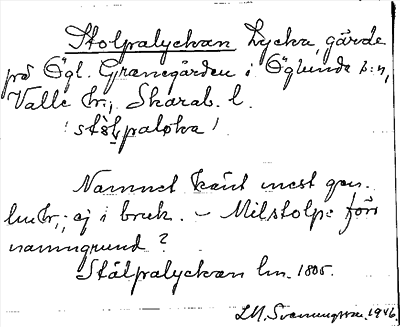 Stolpalyckan Lycka, gärde
på Ögl. Grannegården i Öglunda s:n,
Valle hr; Skarab. l.
Namnet känt mest gen.
lm hr; ej i bruk. – Milstolpe förs
namngrund?
Stålpalyckan lm. 1805.
L.M. Svenungsson 1946.